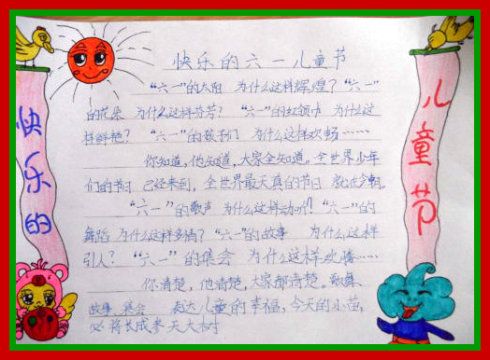 快乐的六一儿童节
"六一"的太阳 为什么这样辉煌？"六一"
的花朵 为什么这样芬芳？"六一"的红领巾 为什么这
样鲜艳？"六一"的孩子们 为什么这样欢畅……
你知道，他知道，大家全知道。全世界少年
们的节日 已经来到，全世界最天真的节日 就在今朝。
"六一"的歌声 为什么这样动听！"六一"的
舞蹈 为什么这样多情？"六一"的故事 为什么这样
引人？"六一"的集会 为什么这样欢腾……
你清楚，他清楚，大家都清楚，歌舞、
故事、集会 表达儿童的幸福，今天的小苗，
必将长成参天大树
快乐的
儿童节